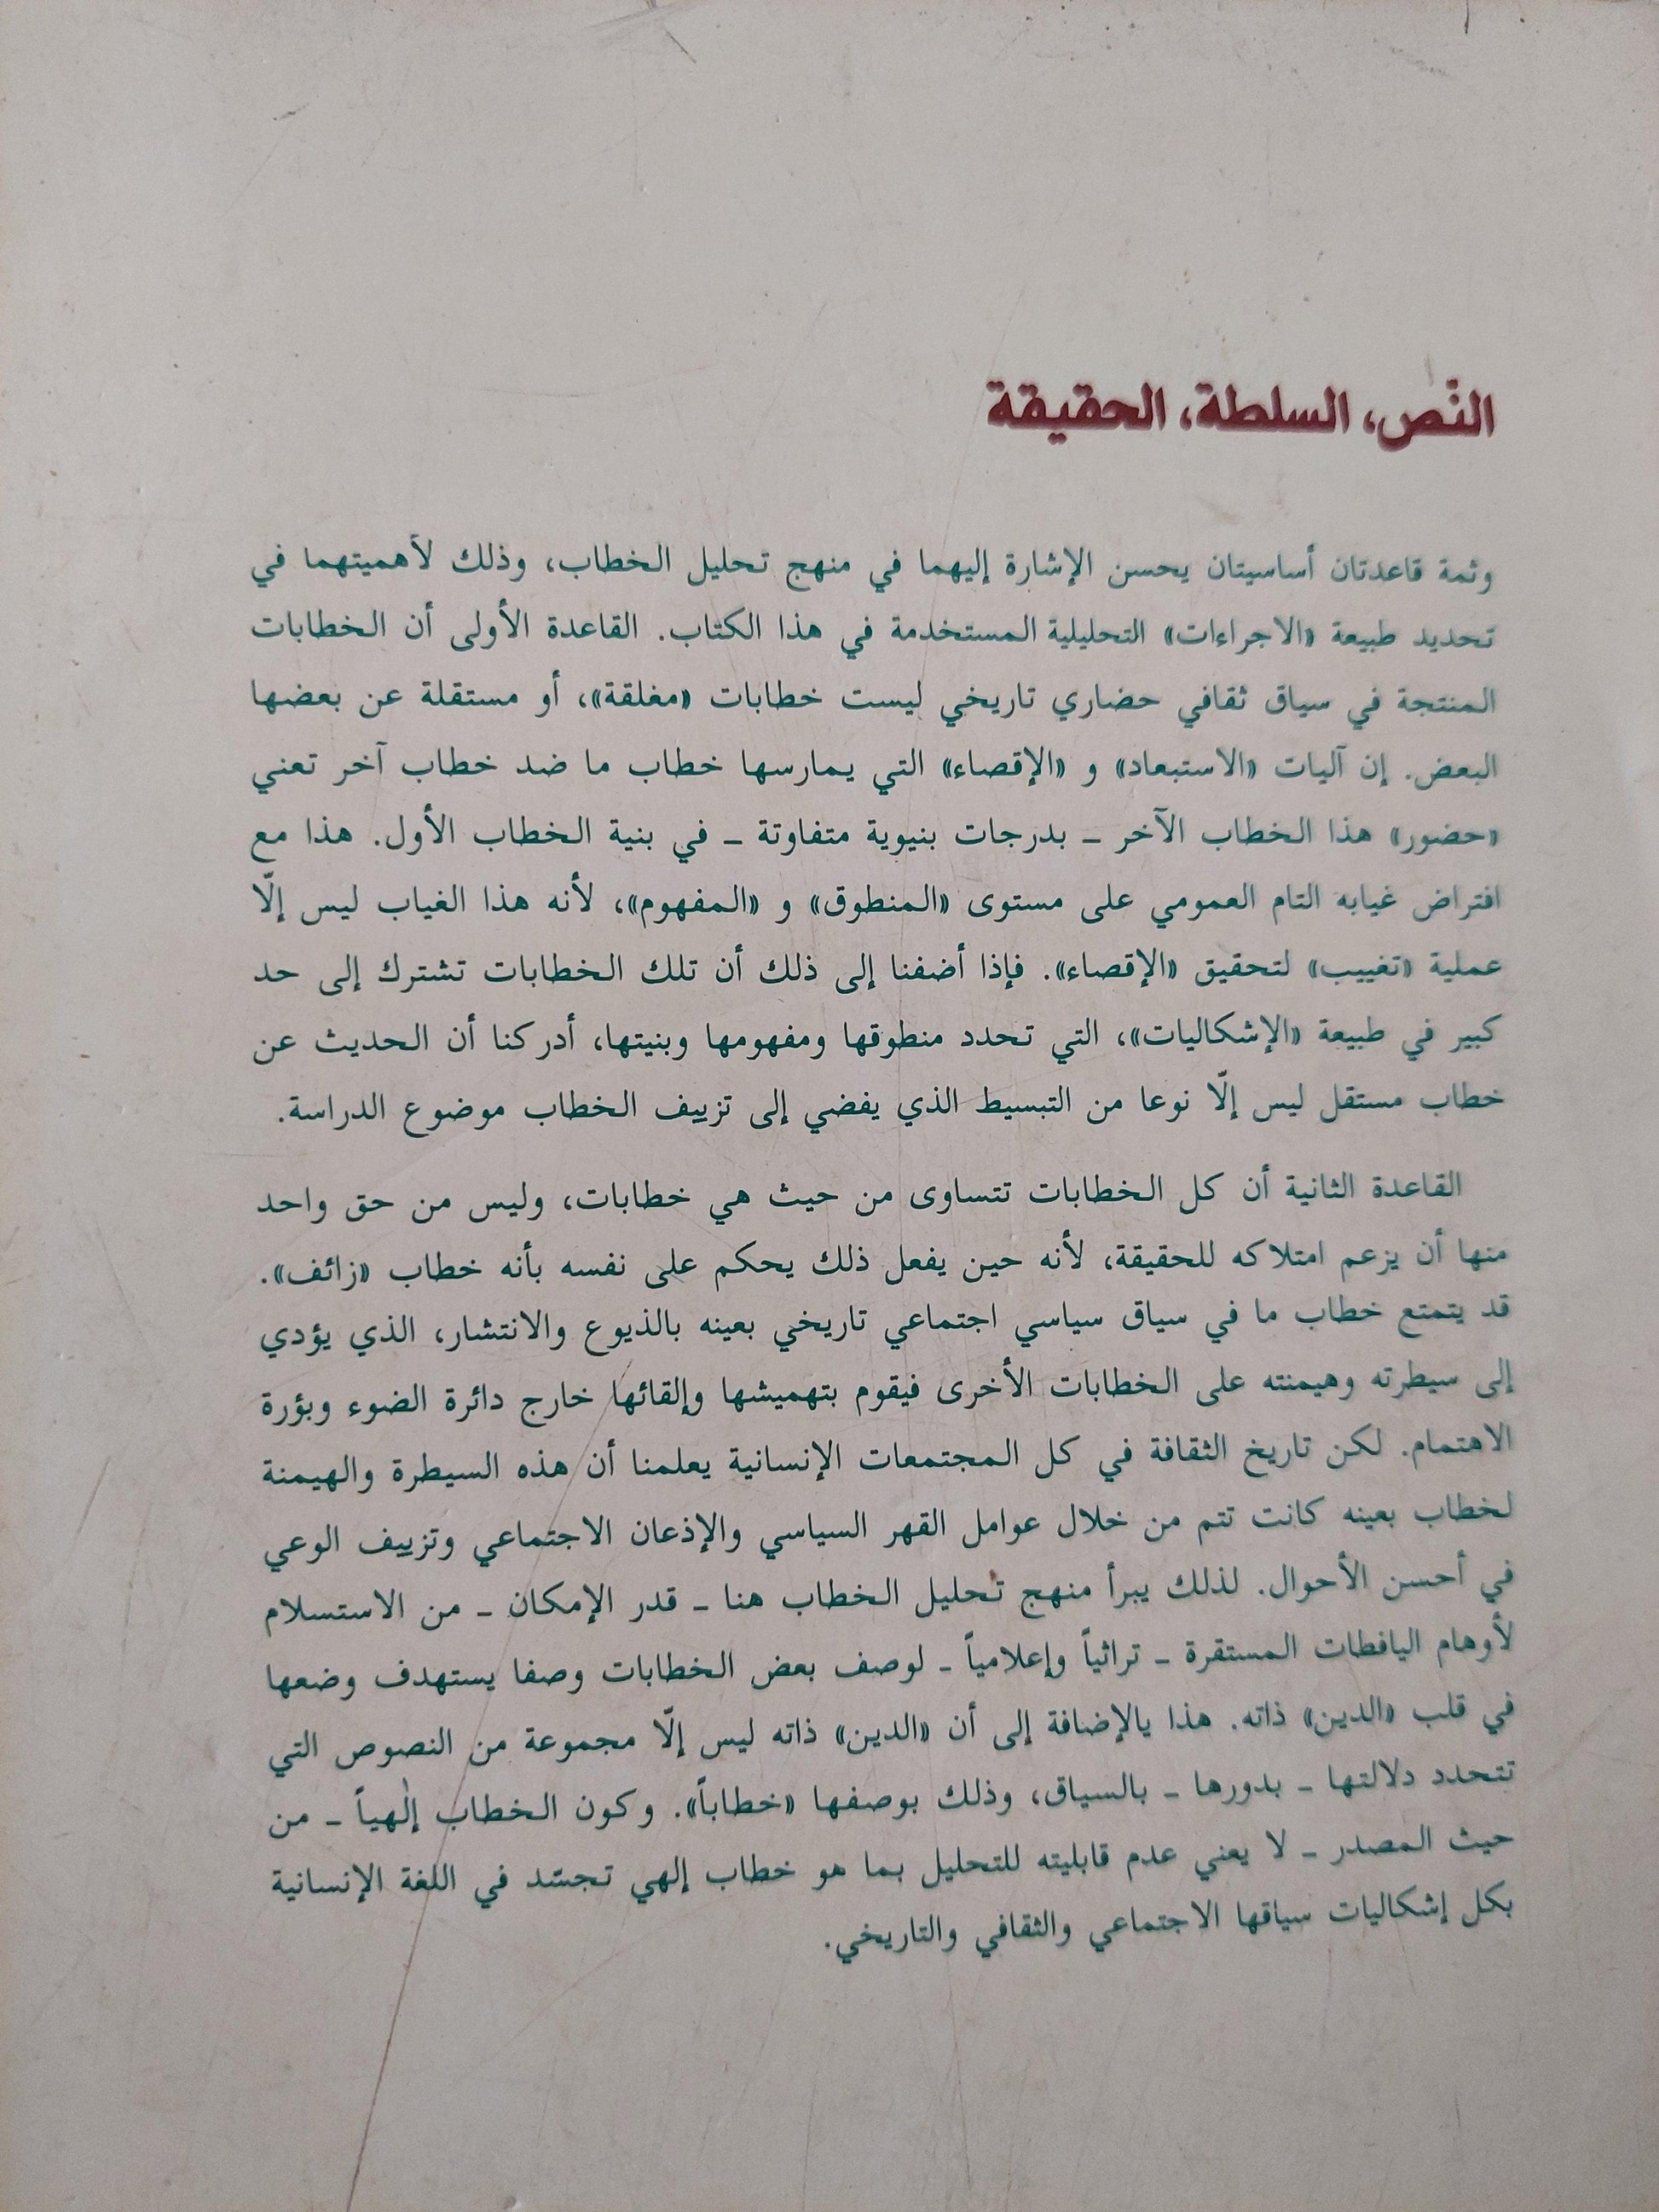 النّص، السلطة، الحقيقة
وثمة قاعدتان أساسيتان يحسن الإشارة إليهما في منهج تحليل الخطاب، وذلك لأهميتهما في
تحديد طبيعة «الاجراءات» التحليلية المستخدمة في هذا الكتاب. القاعدة الأولى أن الخطابات
المنتجة في سياق ثقافي حضاري تاريخي ليست خطابات «مغلقة»، أو مستقلة عن بعضها
البعض. إن آليات «الاستبعاد» و «الإقصاء» التي يمارسها خطاب ما ضد خطاب آخر تعني
«حضور» هذا الخطاب الآخر ـ بدرجات بنيوية متفاوتة ـ في بنية الخطاب الأول. هذا مع
افتراض غيابه التام العمومي على مستوى «المنطوق» و «المفهوم»، لأنه هذا الغياب ليس إلّا
عملية «تغييب» لتحقيق «الإقصاء». فإذا أضفنا إلى ذلك أن تلك الخطابات تشترك إلى حد
كبير في طبيعة «الإشكاليات»، التي تحدد منطوقها ومفهومها وبنيتها، أدركنا أن الحديث عن
خطاب مستقل ليس إلّا نوعا من التبسيط الذي يفضي إلى تزييف الخطاب موضوع الدراسة.
القاعدة الثانية أن كل الخطابات تتساوى من حيث هي خطابات، وليس من حق واحد
منها أن يزعم امتلاكه للحقيقة، لأنه حين يفعل ذلك يحكم على نفسه بأنه خطاب «زائف».
قد يتمتع خطاب ما في سياق سياسي اجتماعي تاريخي بعينه بالذيوع والانتشار، الذي يؤدي
إلى سيطرته وهيمنته على الخطابات الأخرى فيقوم بتهميشها وإلقائها خارج دائرة الضوء وبؤرة
الاهتمام. لكن تاريخ الثقافة في كل المجتمعات الإنسانية يعلمنا أن هذه السيطرة والهيمنة
لخطاب بعينه كانت تتم من خلال عوامل القهر السياسي والإذعان الاجتماعي وتزييف الوعي
في أحسن الأحوال. لذلك يبرأ منهج تحليل الخطاب هنا ـ قدر الإمكان ـ من الاستسلام
لأوهام اليافطات المستقرة ـ تراثياً وإعلامياً ـ لوصف بعض الخطابات وصفا يستهدف وضعها
في قلب «الدين» ذاته. هذا يالإضافة إلى أن «الدين» ذاته ليس إلّا مجموعة من النصوص التي
تتحدد دلالتها ـ بدورها ـ بالسياق، وذلك بوصفها «خطاباً». وكون الخطاب إلٰهياً ـ من
حيث المصدر ـ لا يعني عدم قابليته للتحليل بما هو خطاب إلهي تجسّد في اللغة الإنسانية
بكل إشكاليات سياقها الاجتماعي والثقافي والتاريخي.